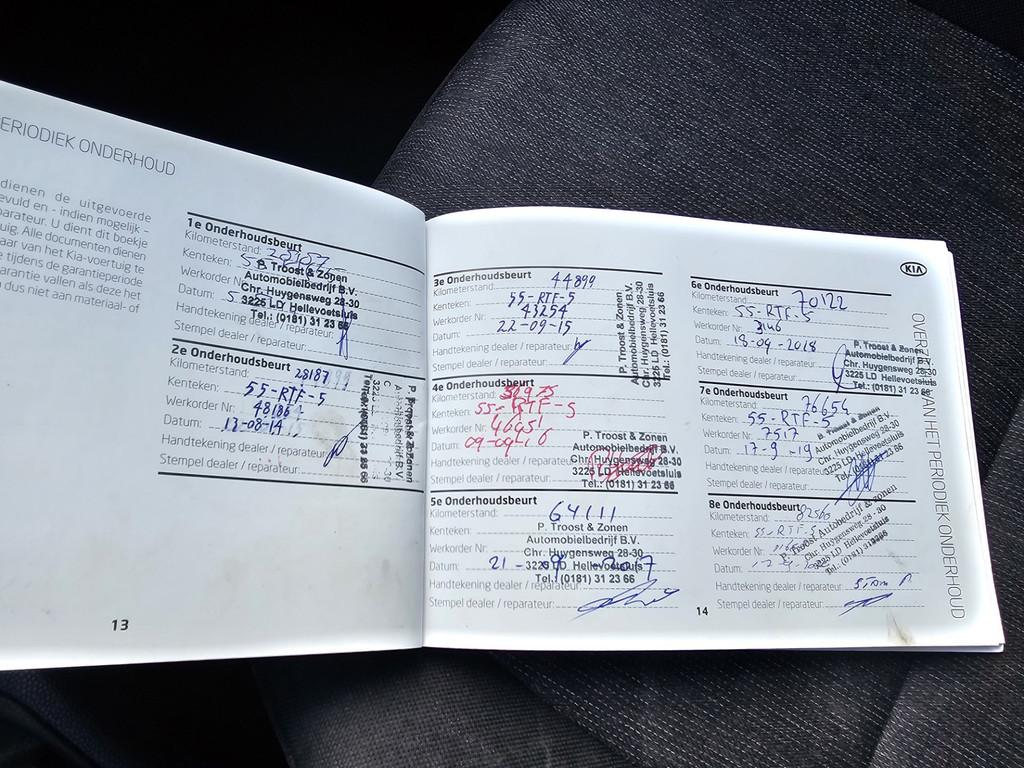 PERIODIEK ONDERHOUD
dienen de uitgevoerde
evuld en - indien mogelijk -
parateur. U dient dit boekje
uig. Alle documenten dienen
aar van het Kia-voertuig te
e tijdens de garantieperiode
arantie vallen als deze het
dus niet aan materiaal- of
1e Onderhoudsbeurt
Kilometerstand:
Kenteken:
Werkorder Nr:
Datum: 5
Handtekening dealer / reparateur:
Stempel dealer / reparateur:
P. Troost & Zonen
Automobielbedrijf B.V.
Chr. Huygensweg 28-30
3225 LD Hellevoetsluis
Tel.: (0181) 31 23 66
2e Onderhoudsbeurt
Kilometerstand: 28187
Kenteken: 55-RTF-5
Werkorder Nr:
Datum: 
Handtekening dealer / reparateur:
Stempel dealer / reparateur:
P. Troost & Zonen
13
3e Onderhoudsbeurt
Kilometerstand: 44899
Kenteken: 55-RTF-5
Werkorder Nr: 43254
Datum: 22-09-15
Handtekening dealer / reparateur:
Stempel dealer / reparateur:
P. Troost & Zonen
Automobielbedrijf B.V.
Chr. Huygensweg 28-30
3225 LD Hellevoetsluis
Tel.: (0181) 31 23 66
4e Onderhoudsbeurt
Kilometerstand:
Kenteken: 55-RTF-5
Werkorder Nr: 46451
Datum: 09-09-16
Handtekening dealer / reparateur:
Stempel dealer / reparateur:
P. Troost & Zonen
Automobielbedrijf B.V.
Chr. Huygensweg 28-30
3225 LD Hellevoetsluis
Tel.: (0181) 31 23 66
5e Onderhoudsbeurt
Kilometerstand: 64111
Kenteken:
Werkorder Nr:
Datum: 21-09-2017
Handtekening dealer / reparateur:
Stempel dealer / reparateur:
P. Troost & Zonen
Automobielbedrijf B.V.
Chr. Huygensweg 28-30
3225 LD Hellevoetsluis
Tel.: (0181) 31 23 66
KIA
6e Onderhoudsbeurt
Kilometerstand: 70122
Kenteken: 55-RTF-5
Werkorder Nr:
Datum: 18-09-2018
Handtekening dealer / reparateur:
Stempel dealer / reparateur:
P. Troost & Zonen
Automobielbedrijf B.V.
Chr. Huygensweg 28-30
3225 LD Hellevoetsluis
Tel.: (0181) 31 23 66
7e Onderhoudsbeurt
Kilometerstand: 76654
Kenteken: 55-RTF-5
Werkorder Nr: 7517
Datum: 17-9-19
Handtekening dealer / reparateur:
Stempel dealer / reparateur:
P. Troost & Zonen
Automobielbedrijf B.V.
Chr. Huygensweg 28-30
3225 LD Hellevoetsluis
8e Onderhoudsbeurt
Kilometerstand: 82560
Kenteken: 55-RTF-5
Werkorder Nr:
Datum:
Handtekening dealer / reparateur:
Stempel dealer / reparateur:
P. Troost Autobedrijf & zonen
Chr. Huygensweg 28-30
Tel. (0181) 313366
14
VAN HET PERIODIEK ONDERHOUD